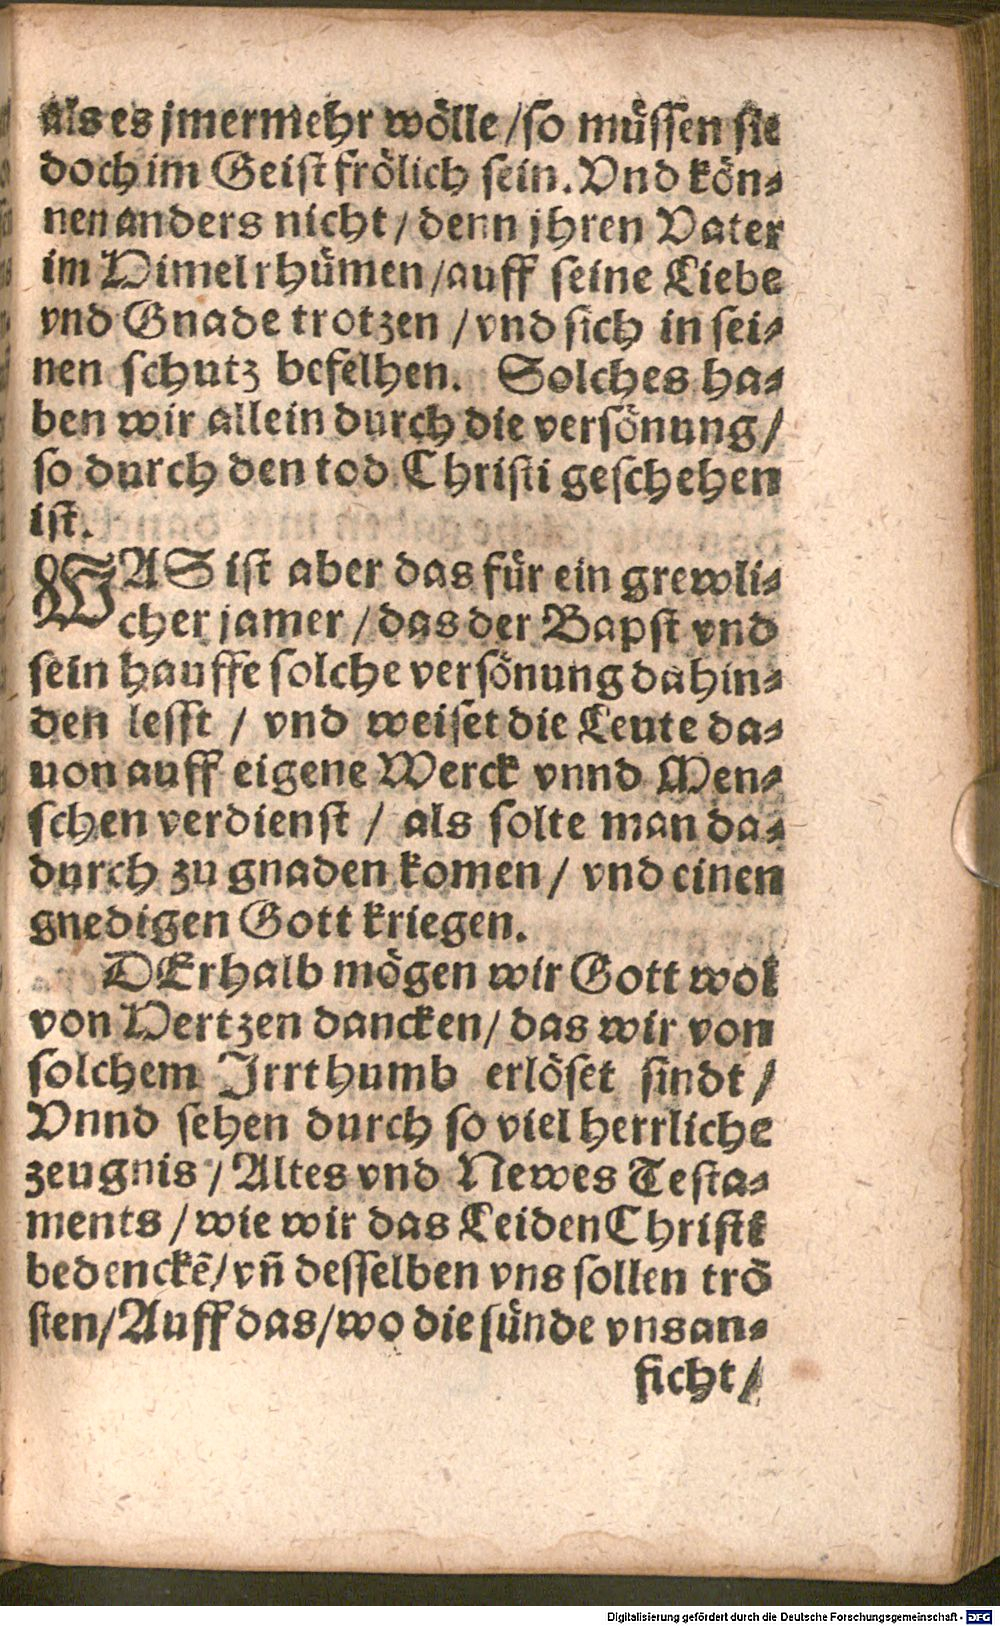 als es jmermehr wölle / so müssen sie
doch im Geist frölich sein. Vnd kön-
nen anders nicht / denn jhren Vater
im Himel rhümen / auff seine Liebe
vnd Gnade trotzen / vnd sich in sei-
nen schutz befelhen. Solches ha-
ben wir allein durch die versönung /
so durch den tod Christi geschehen
ist.
WAS ist aber das für ein grewli-
cher jamer / das der Bapst vnd
sein hauffe solche versönung dahin-
den lesst / vnd weiset die Leute da-
uon auff eigene Werck vnnd Men-
schen verdienst / als solte man da-
durch zu gnaden komen / vnd einen
gnedigen Gott kriegen.
DErhalb mögen wir Gott wol
von Hertzen dancken / das wir von
solchem Irrthumb erlöset sindt /
Vnnd sehen durch so viel herrliche
zeugnis / Altes vnd Newes Testa-
ments / wie wir das Leiden Christi
bedenckẽ / vñ desselben vns sollen trö
sten / Auff das / wo die sünde vns an-
ficht /
Digitalisierung gefördert durch die Deutsche Forschungsgemeinschaft - DFG